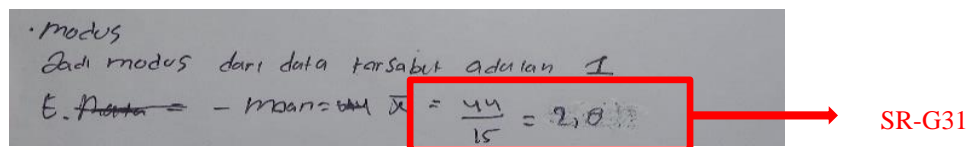 • modus
Jadi modus dari data tersabut adalah 1
E. - mean= x̄ = 44/15 = 2,8
SR-G31